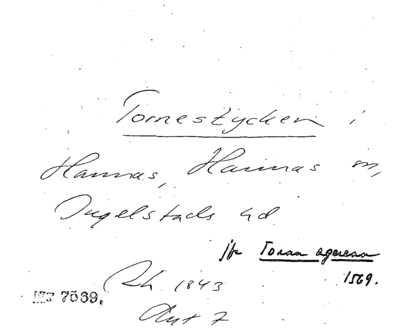 Tornestycken i
Hannas, Hannas sn,
Ingelstads hd.
jfr Toran ageren
1569.
Rh 1843
Akt 7
Nr 7569.